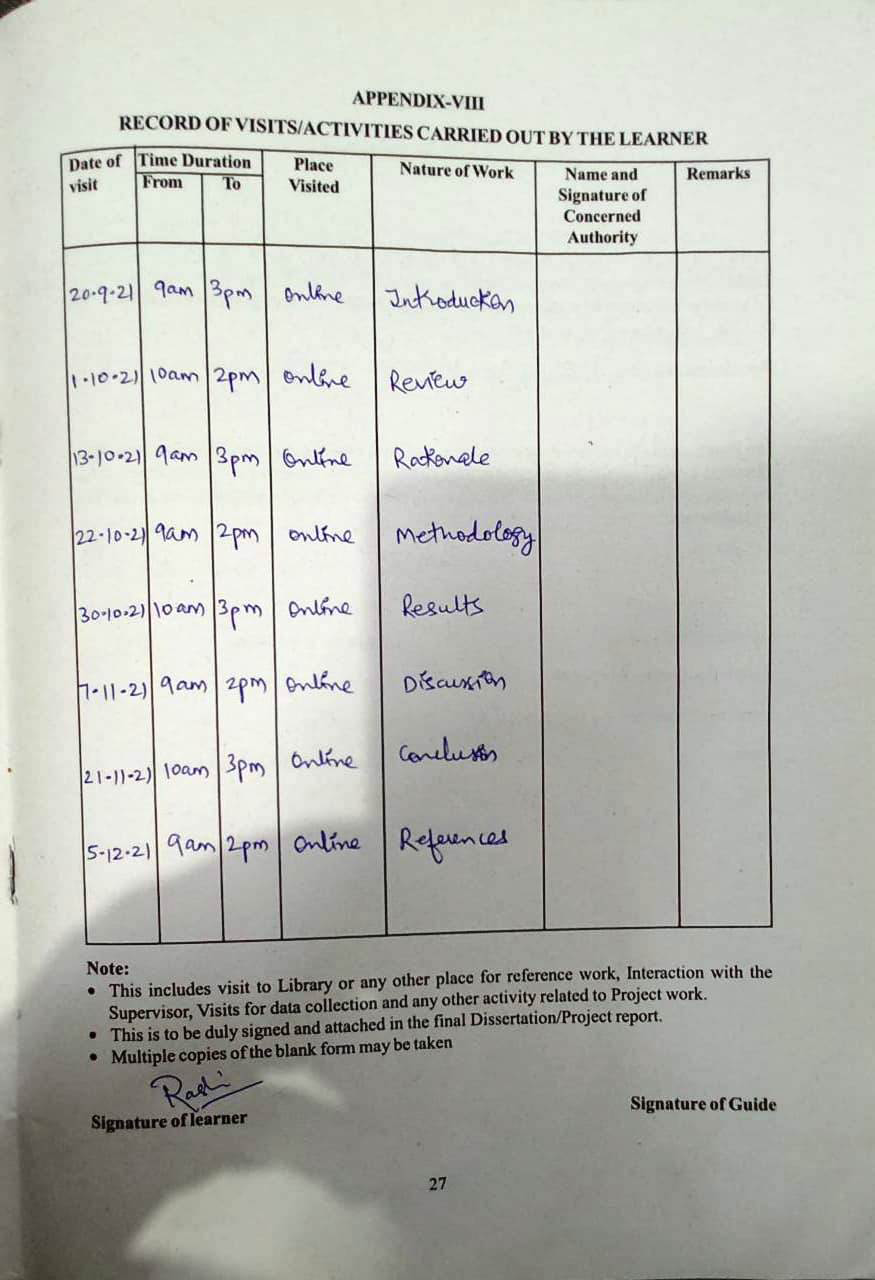 APPENDIX-VIII
RECORD OF VISITS/ACTIVITIES CARRIED OUT BY THE LEARNER
Date of visit | Time Duration From | To | Place Visited | Nature of Work | Name and Signature of Concerned Authority | Remarks
20.9.21 9am 3pm Online Introduction
1.10.21 10am 2pm Online Review
13.10.21 9am 3pm Online Rationale
22.10.21 9am 2pm Online Methodology
30.10.21 10am 3pm Online Results
7.11.21 9am 2pm Online Discussion
21.11.21 10am 3pm Online Conclusion
5.12.21 9am 2pm Online References
Note:
• This includes visit to Library or any other place for reference work, Interaction with the
Supervisor, Visits for data collection and any other activity related to Project work.
• This is to be duly signed and attached in the final Dissertation/Project report.
• Multiple copies of the blank form may be taken
Signature of learner
Signature of Guide
27